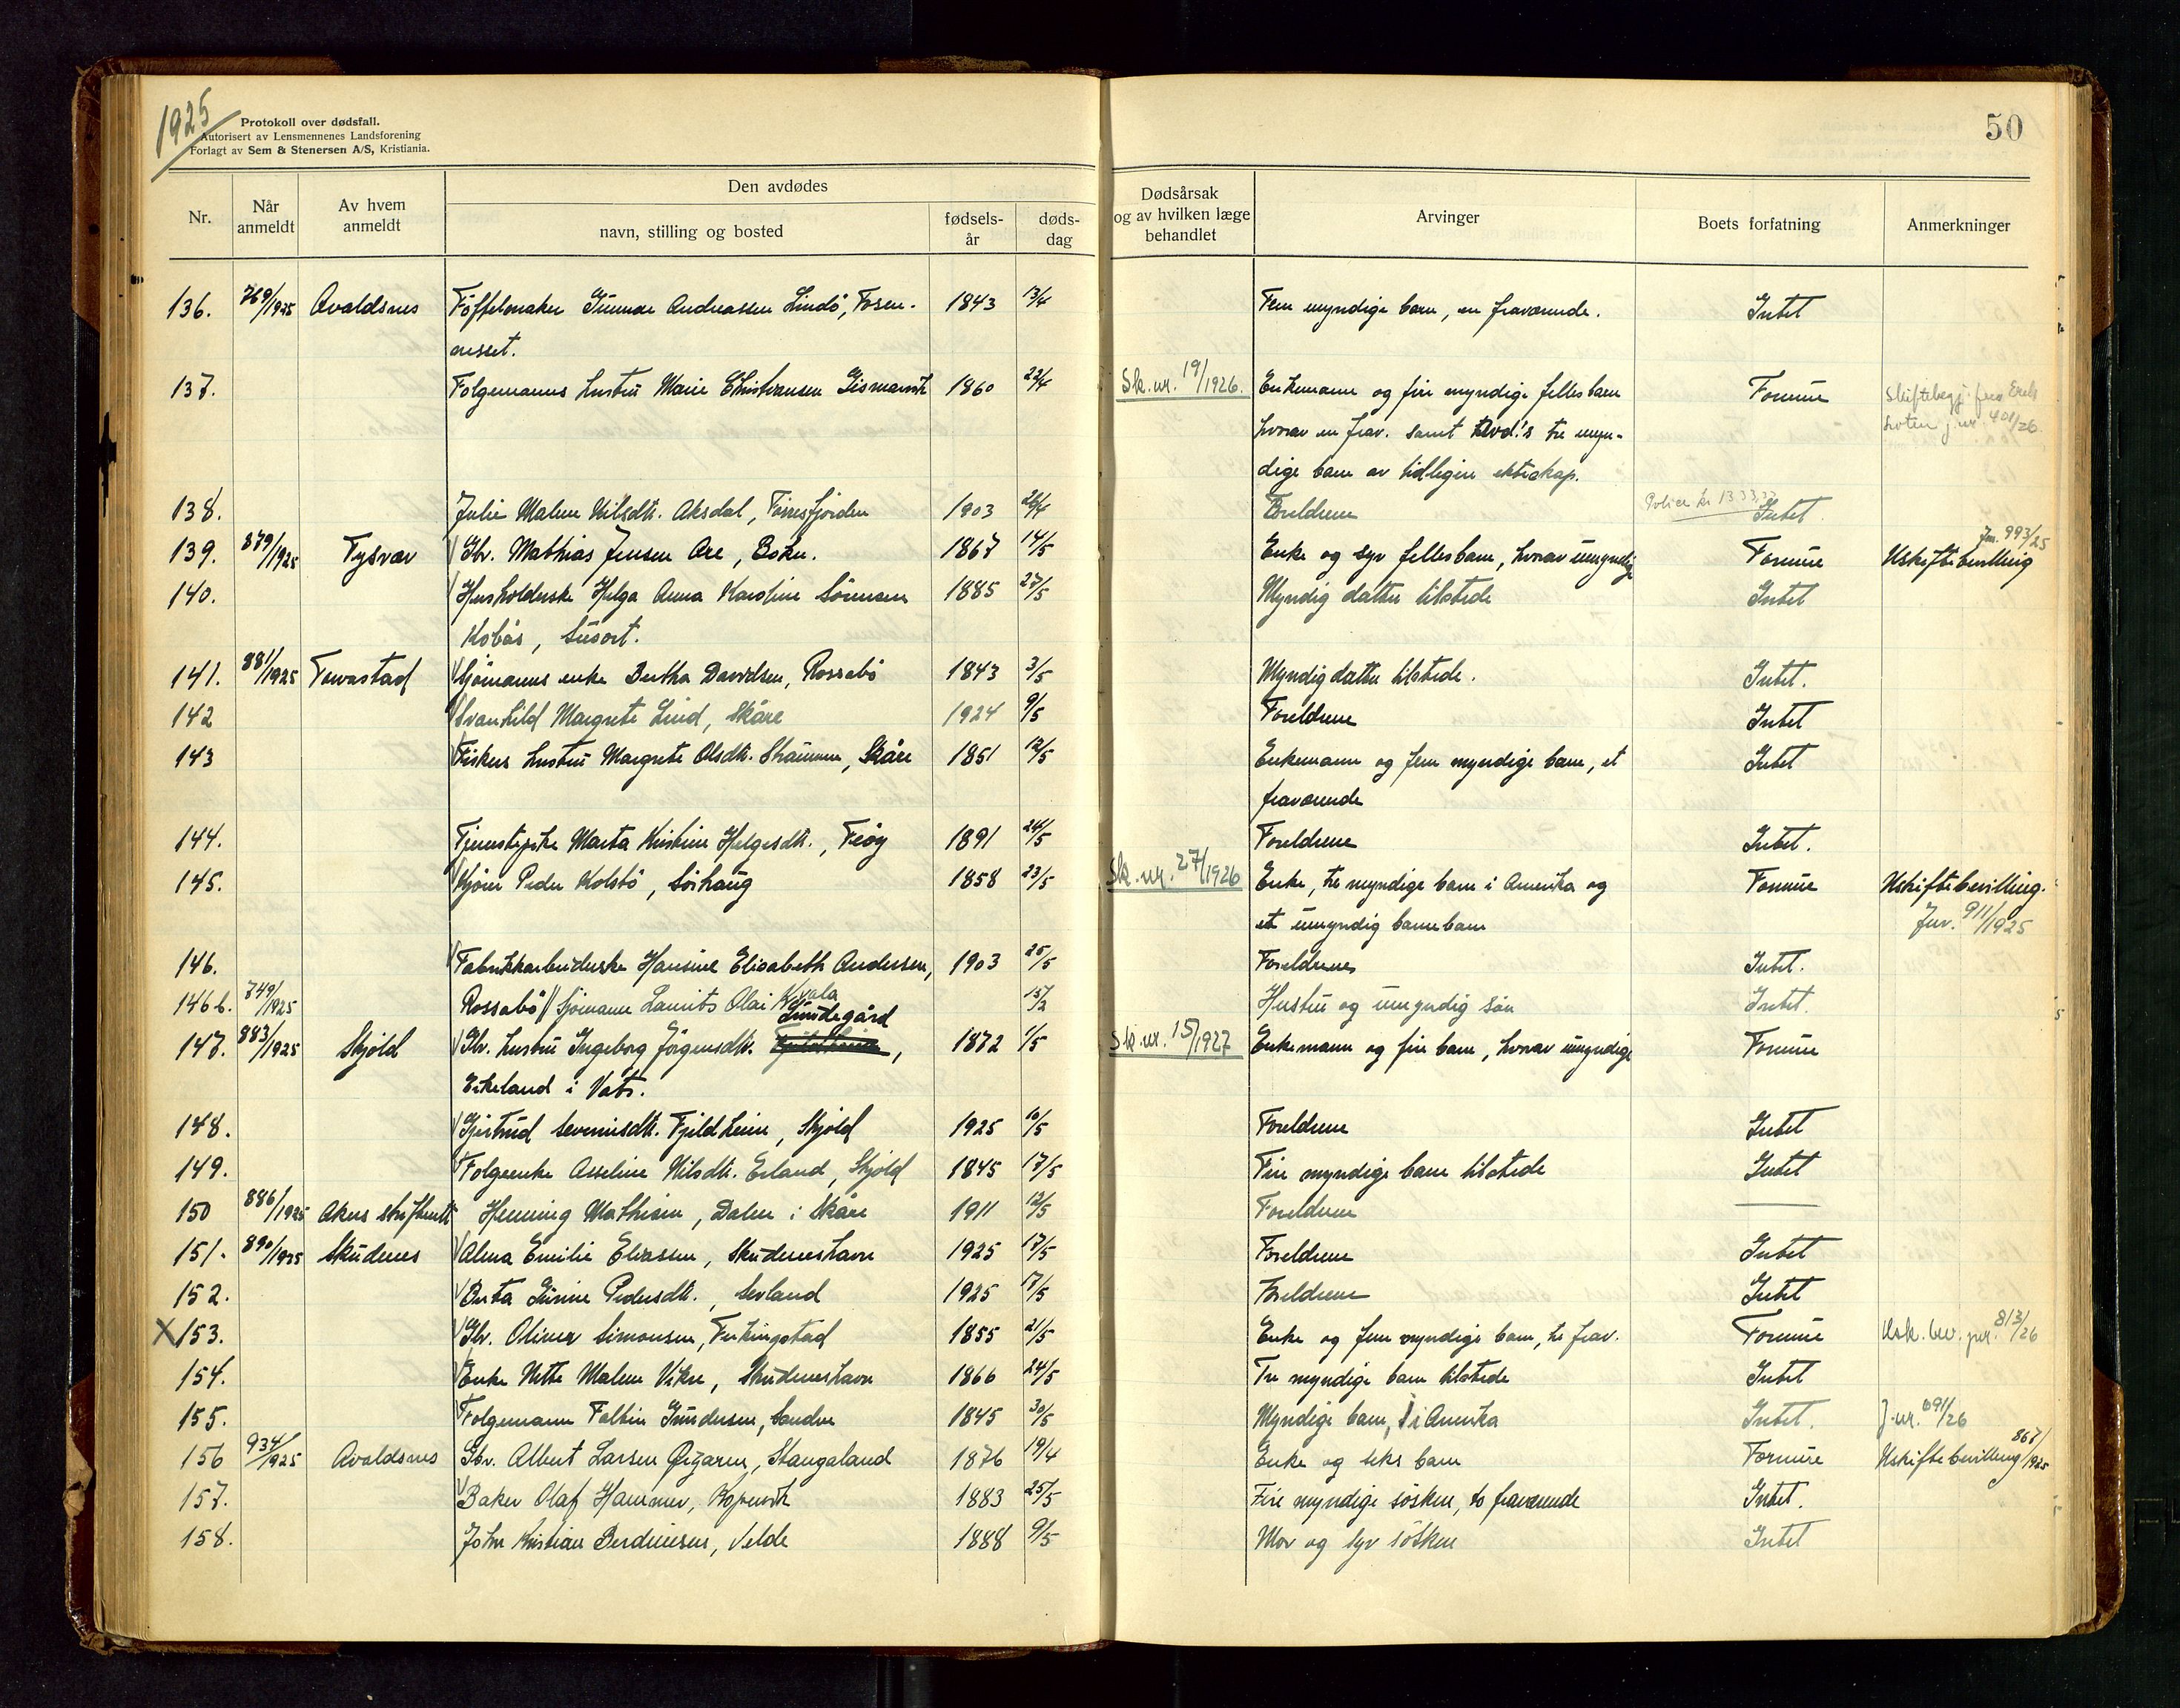 1925
Protokoll over dødsfall.
Autorisert av Lensmennenes Landsforening
Forlagt av Sem & Stenersen A/S, Kristiania.
50
Nr. Når anmeldt Av hvem anmeldt Den avdødes navn, stilling og bosted fødselsår dødsdag Dødsårsak og av hvilken læge behandlet Arvinger Boets forfatning Anmerkninger
136. 769/1925 Avaldsnes Töffelmaker Gunnar Andreassen Lindö, Fosen- 1843 13/4 Fem myndige barn, en fraværende. Intet
nesset.
137. Folgemanns hustru Marie Christensen Gismarvik 1860 22/4 Sk. nr. 19/1926. Enkemann og fire myndige fellesbarn Formue Skiftebegj. fra
hvorav en frav. samt avd.'s tre myn- j. nr. 401/26
dige barn av tidligere ekteskap.
138. Julie Malene Nilsdtr. Aksdal, Förresfjorden 1903 26/4 Foreldrene Intet
139. 879/1925 Tysvær Gbr. Mathias Jensen Are, Bokn. 1867 14/5 Enke og syv fellesbarn, hvorav umyndige Formue Uskiftebevilling Jnr. 993/25
140. Husholderske Helga Anna Karoline Sörensen 1885 27/5 Myndig datter tilstede Intet
Kobås, Susort.
141. 881/1925 Torvastad Sjömanns enke Bertha Davidsen, Rossabö 1843 3/5 Myndig datter tilstede. Intet.
142 Svanhild Margrete Lind, Skåre 1924 9/5 Foreldrene Intet
143 Fiskers hustru Margrete Olsdtr. Skåre 1851 12/5 Enkemann og fem myndige barn, et Intet
fraværende
144. Tjenestepike Marta Kristine Helgesdtr., Feöy 1891 24/5 Foreldrene Intet.
145. Peder Kolstö, Sörhaug 1858 23/5 Sk. nr. 27/1926 Enke, tre myndige barn i Amerika og Formue Uskiftebevilling.
et umyndig barnebarn Jnr. 911/1925
146. Fabrikkarbeiderske Hansine Elisabeth Andersen, 1903 25/5 Foreldrene Intet.
146b. 749/1925 Rossabö Sjömann Laurits Olai Kvala 15/2 Hustru og umyndig sön Intet.
147. 883/1925 Skjold Gbr. hustru Ingeborg Jörgensdtr. Lundegård, 1872 1/5 Sk. nr. 15/1927 Enkemann og fire barn, hvorav umyndige Formue
Eikeland i Vats.
148. Gjertrud Severinsdtr. Fjeldheim, Skjold 1925 10/5 Foreldrene Intet
149. Folgeenke Asseline Nilsdtr. Erland, Skjold 1845 17/5 Fire myndige barn tilstede Intet
150 886/1925 Akers skifterett Henning Mathisen, Dalen i Skåre 1911 12/5 Foreldrene —
151. 890/1925 Skudenes Alma Emilie Eliassen, Skudeneshavn 1925 17/5 Foreldrene Intet
152. Berta Gurine Pedersdtr., Sevland 1925 17/5 Foreldrene Intet
X 153. Gbr. Oliver Simonsen, Ferkingstad 1855 21/5 Enke og fem myndige barn, tre frav. Formue Usk. bev. jnr. 813/26
154. Enke Mette Malene Vikre, Skudeneshavn 1866 24/5 Tre myndige barn tilstede Intet
155. Folgemann Gundersen, Sandve 1845 30/5 Myndige barn, i Amerika Intet. J. nr. 691/26
156 934/1925 Avaldsnes Gbr. Albert Larsen Öygaren, Stangeland 1876 19/4 Enke og seks barn Formue Uskiftebevilling 867/1925
157. Baker Olaf Hammer, Kopervik 1883 25/5 Fire myndige søsken, to fraværende Intet.
158. John Kristian Berdinesen, Velde 1888 9/5 Mor og syv sösken Intet